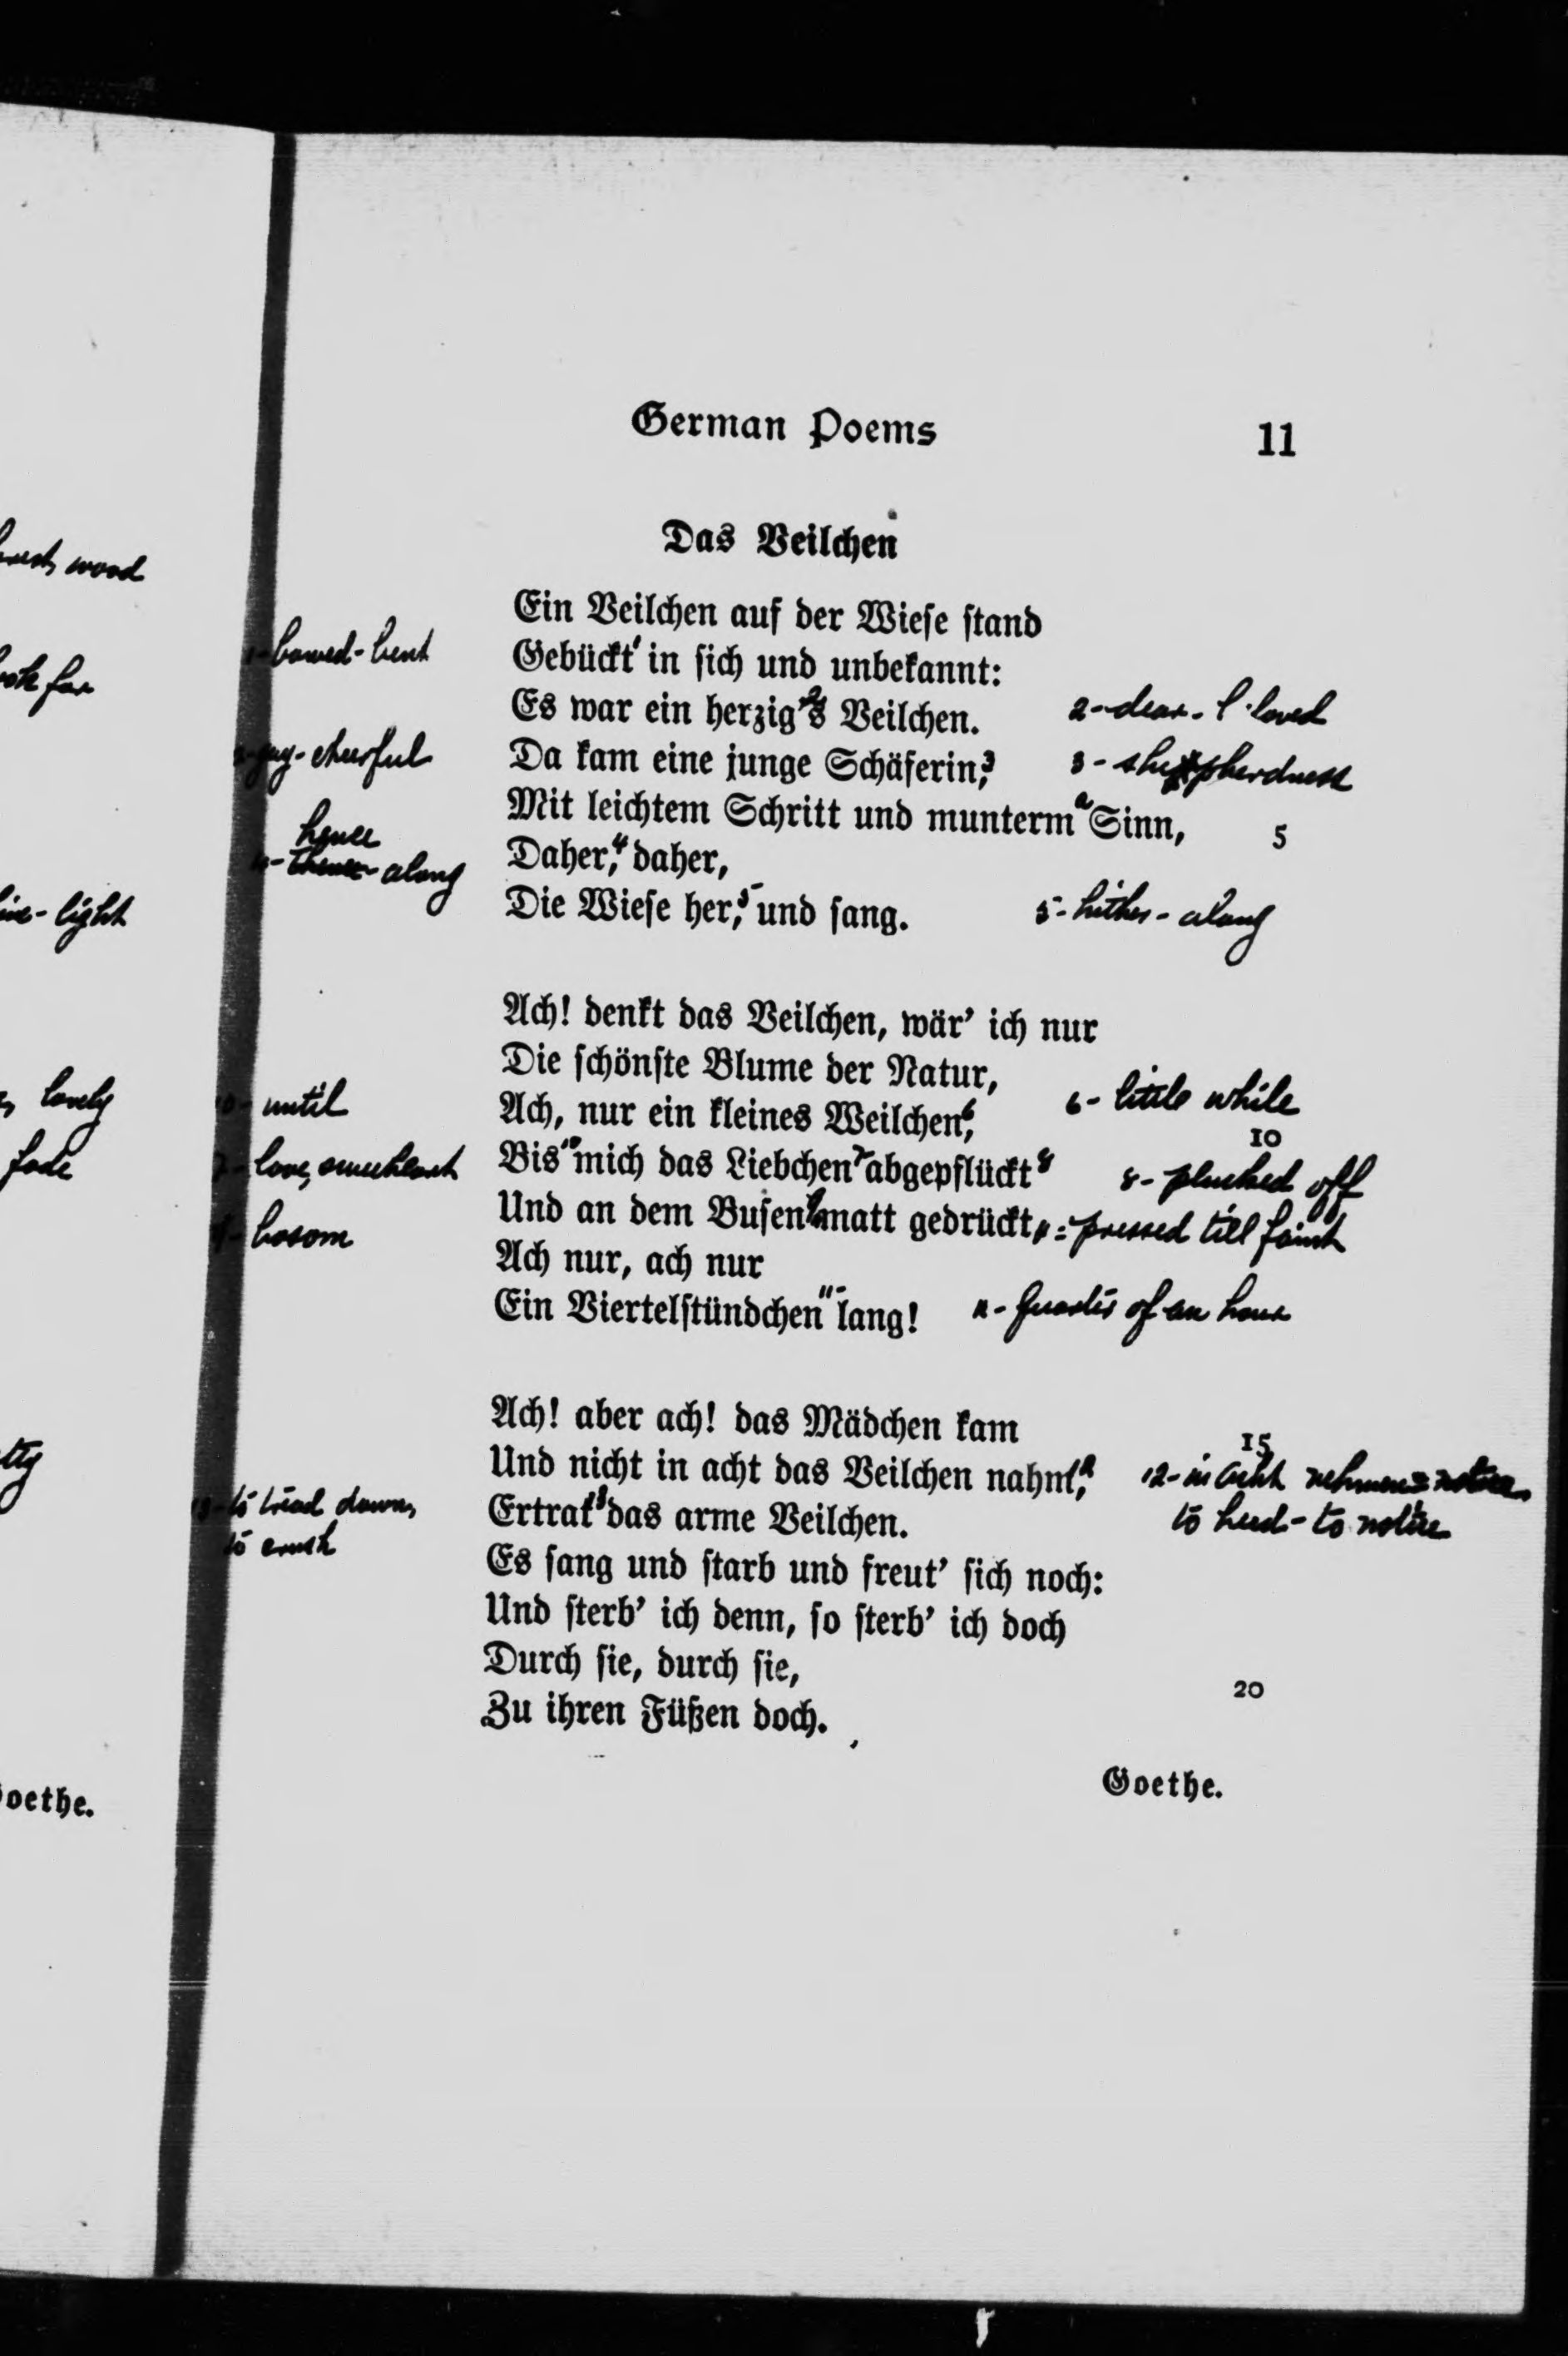 German Poems 11
Das Veilchen
Ein Veilchen auf der Wiese stand
1-bowed-bent
Gebückt¹ in sich und unbekannt:
Es war ein herzig's² Veilchen.
2-dear. loved
a-gay-cheerful
Da kam eine junge Schäferin,³
3-shepherdness
Mit leichtem Schritt und munterm ᵃ Sinn, 5
hence
4- along
Daher,⁴ daher,
Die Wiese her,⁵ und sang.
5-hither-along
Ach! denkt das Veilchen, wär' ich nur
Die schönste Blume der Natur,
10-until
Ach, nur ein kleines Weilchen,⁶
6-little while
10
7-love, sweetheart
Bis¹⁰ mich das Liebchen⁷ abgepflückt⁸
8-plucked off
9-bosom
Und an dem Busen⁹ matt gedrückt,
11=pressed till faint
Ach nur, ach nur
Ein Viertelstündchen¹¹ lang!
11-quarter of an hour
Ach! aber ach! das Mädchen kam
15
Und nicht in acht das Veilchen nahm,¹²
12-in acht nehmen=notice
to heed-to notice
13-to tread down,
to crush
Ertrat¹³ das arme Veilchen.
Es sang und starb und freut' sich noch:
Und sterb' ich denn, so sterb' ich doch
Durch sie, durch sie,
20
Zu ihren Füßen doch.
Goethe.
wood
for
light
lovely
fade
oethe.